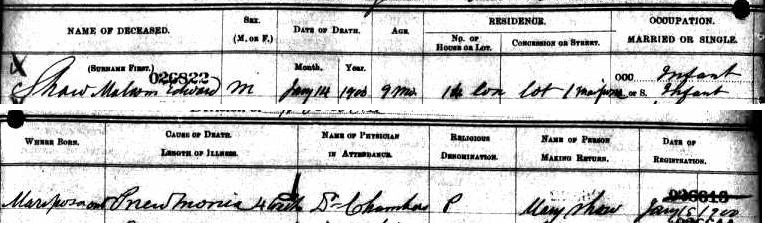 NAME OF DECEASED.
SEX.
(M. OR F.)
DATE OF DEATH.
AGE.
RESIDENCE.
NO. OF HOUSE OR LOT.
CONCESSION OR STREET.
OCCUPATION.
MARRIED OR SINGLE.
(SURNAME FIRST.)
026822
Month. Year.
OCC Infant
Shaw Edward M Jany 14 1900 9 mo con lot Mariposa M. or S. Infant
WHERE BORN.
CAUSE OF DEATH.
LENGTH OF ILLNESS.
NAME OF PHYSICIAN
IN ATTENDANCE.
RELIGIOUS
DENOMINATION.
NAME OF PERSON
MAKING RETURN.
DATE OF
REGISTRATION.
Mariposa Ont Pneumonia 4 Dr Chambers P Mary Shaw Jany 15 1900